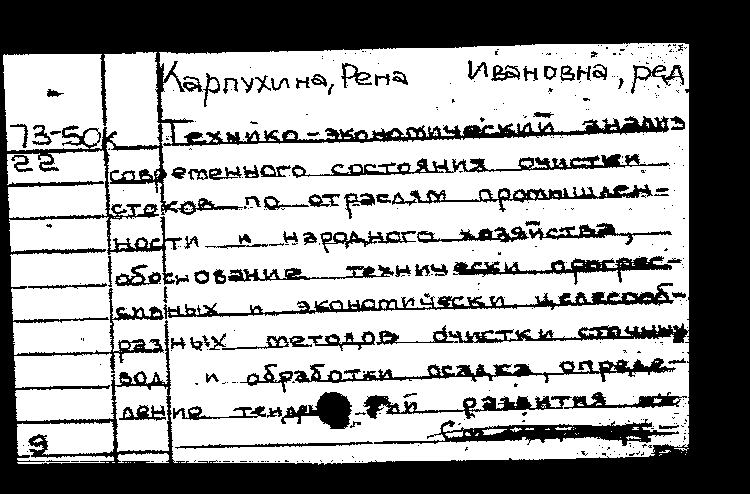 Карпухина, Рена Ивановна, ред
73-50к Технико-экономический анализ
22 современного состояния очистки
стоков по отраслям промышлен-
ности и народного хозяйства,
обоснование технически прогрес-
сивных и экономически целесооб-
разных методов очистки сточных
вод и обработки осадка, опреде-
ление развития их
9 См